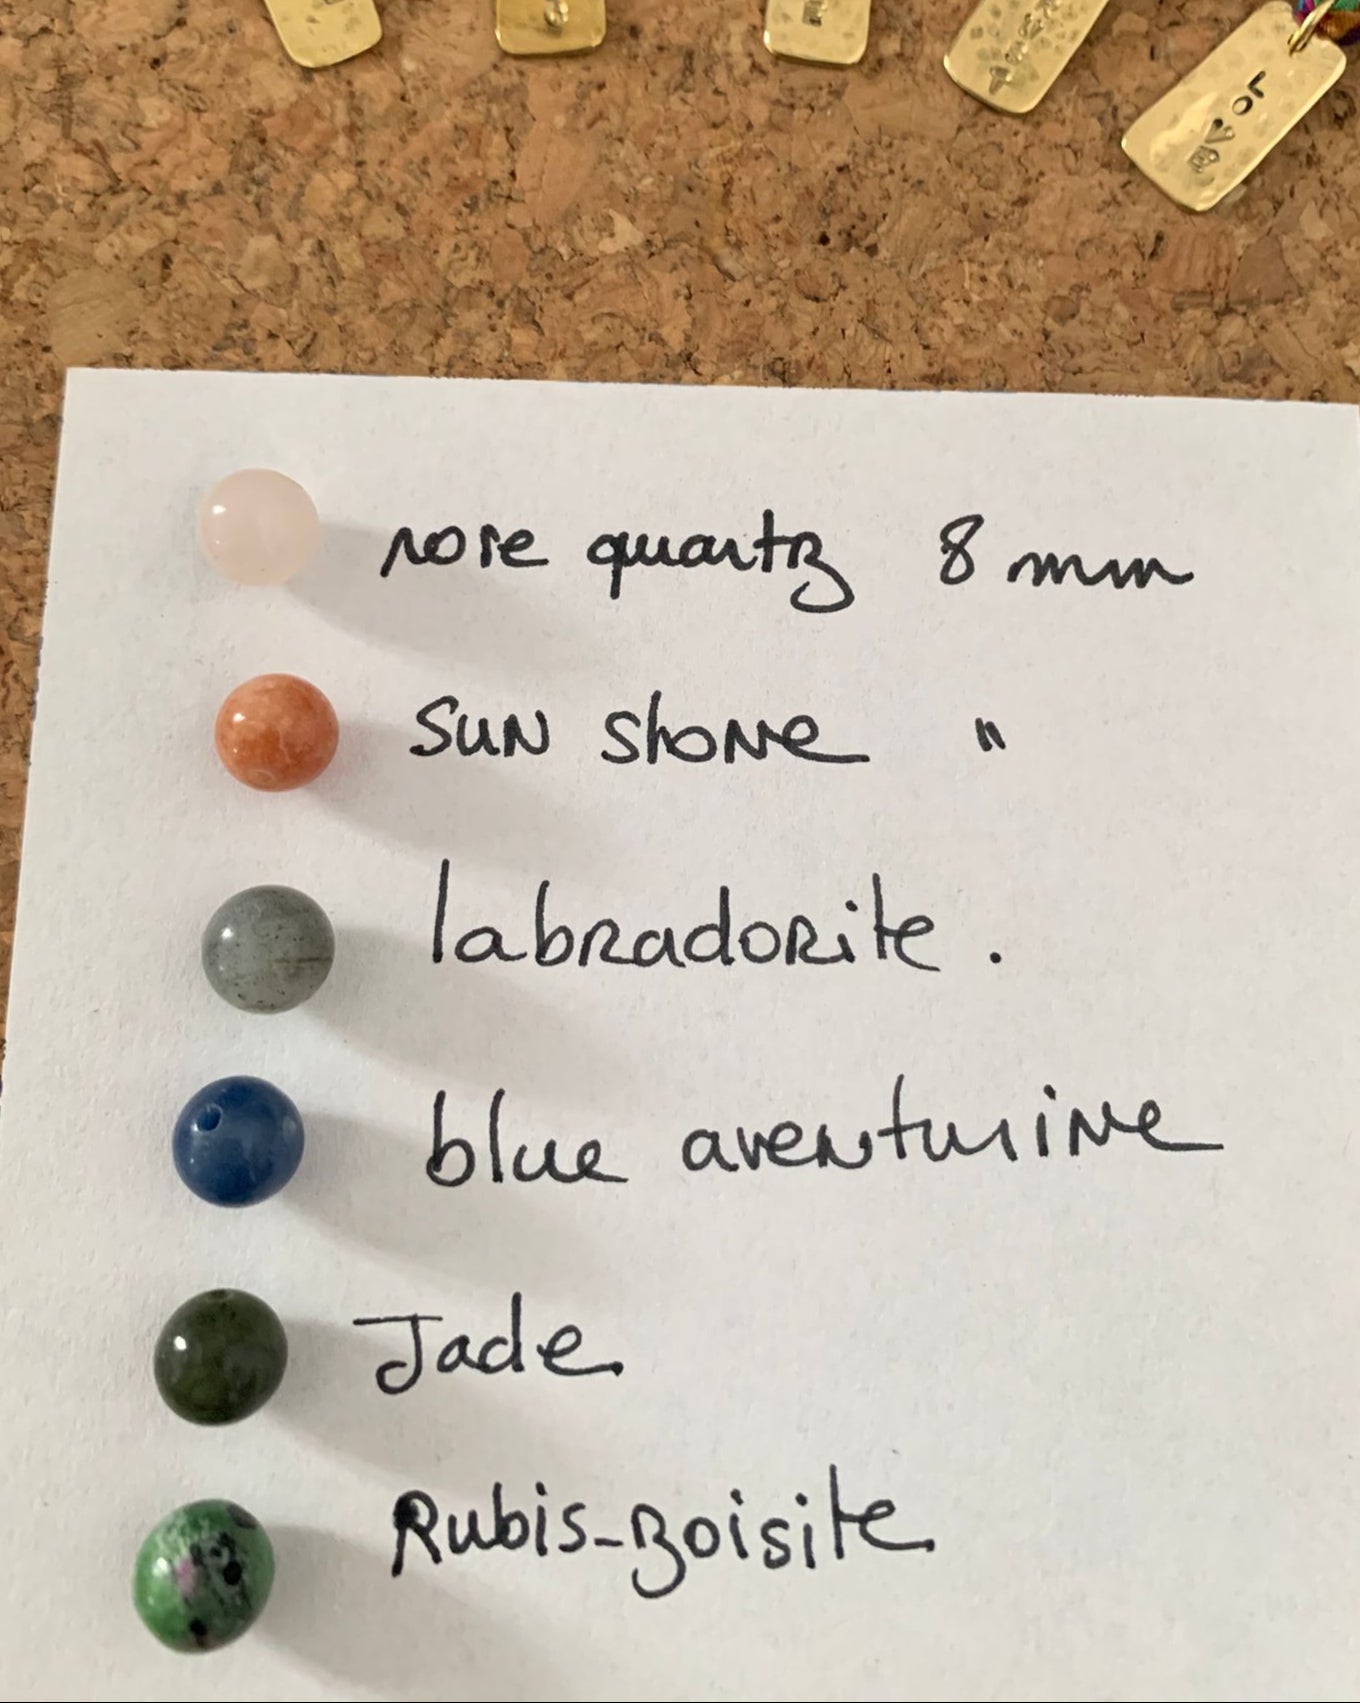 rose quartz 8 mm
sun stone "
labradorite.
blue aventurine
Jade
Rubis-zoisite